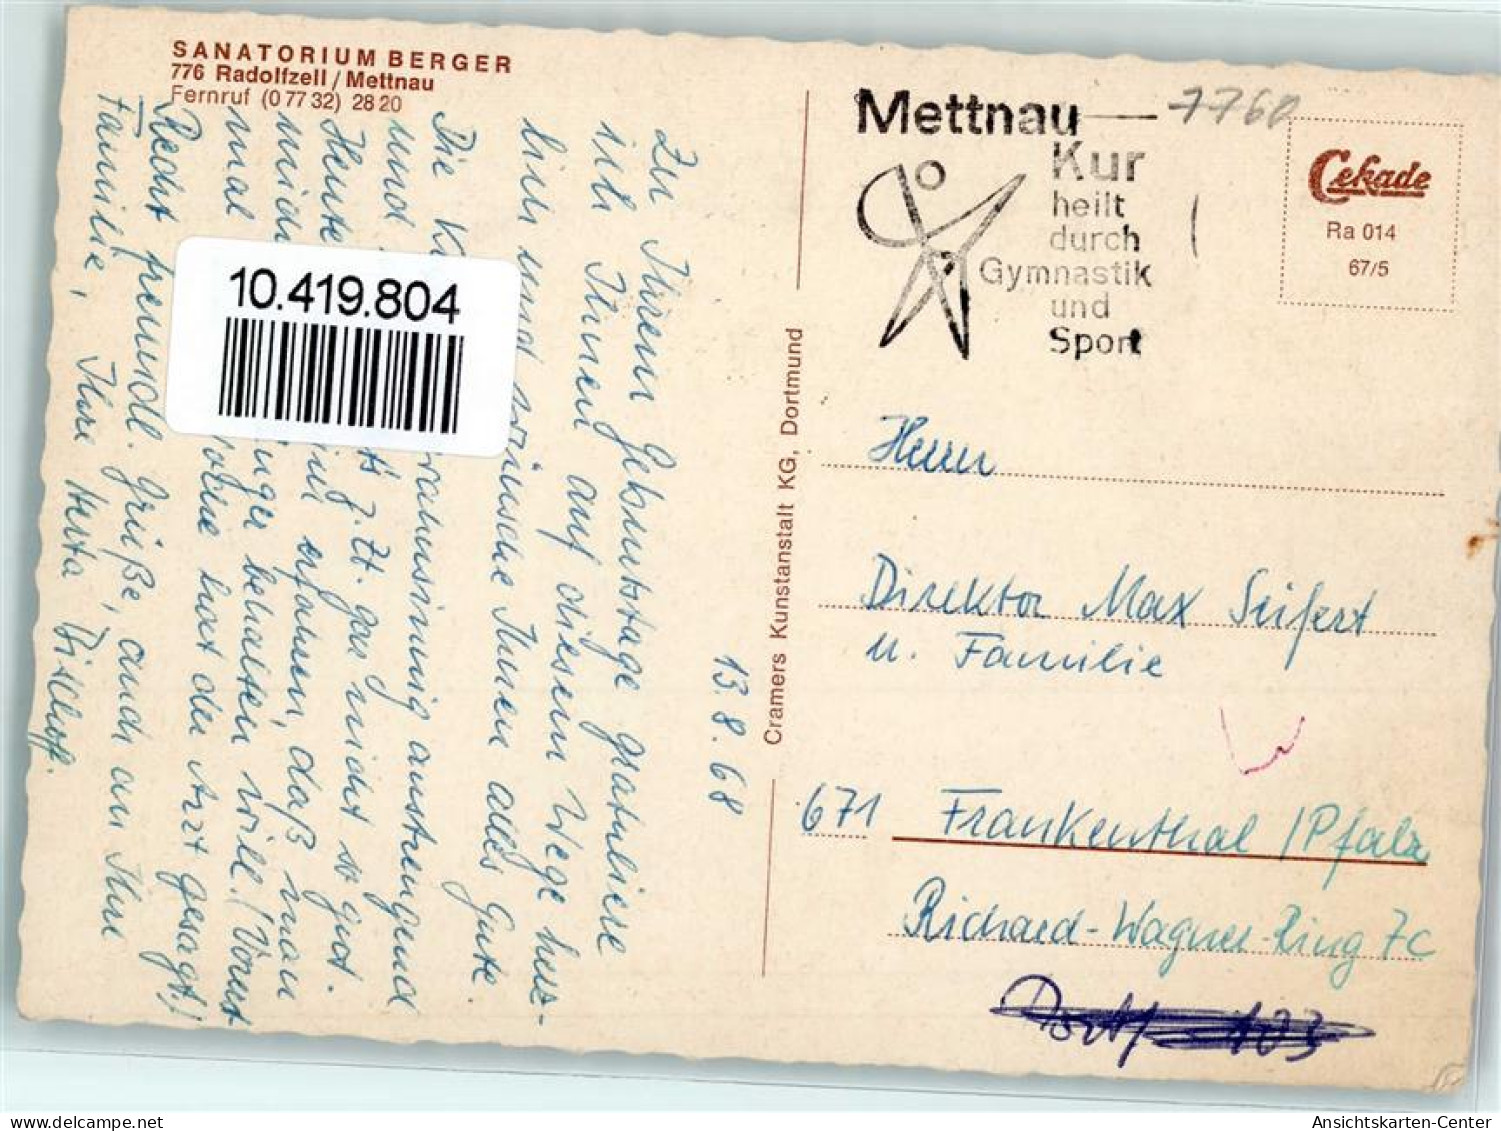 SANATORIUM BERGER
776 Radolfzell / Mettnau
Fernruf (0 77 32) 28 20
13. 8. 68
Zu Ihrem Geburtstage gratuliere
ich Ihnen auf diesem Wege herz-
lich und wünsche Ihnen alles Gute.
Die K wahnsinnig anstrengend
und z. Zt. gar nicht so gut.
Heute erfahren, daß man
mich nger behalten will! (Vorerst
mal Woche hat der Arzt gesagt!)
Recht freundl. Grüße, auch an Ihre
Familie, Ihre Herta
10.419.804
Cramers Kunstanstalt KG, Dortmund
Mettnau
7760
Kur
heilt
durch
Gymnastik
und
Sport
Cekade
Ra 014
67/5
Herrn
Direktor Max Seifert
u. Familie
671 Frankenthal /Pfalz
Richard-Wagner-Ring 7c
103
Ansichtskarten-Center